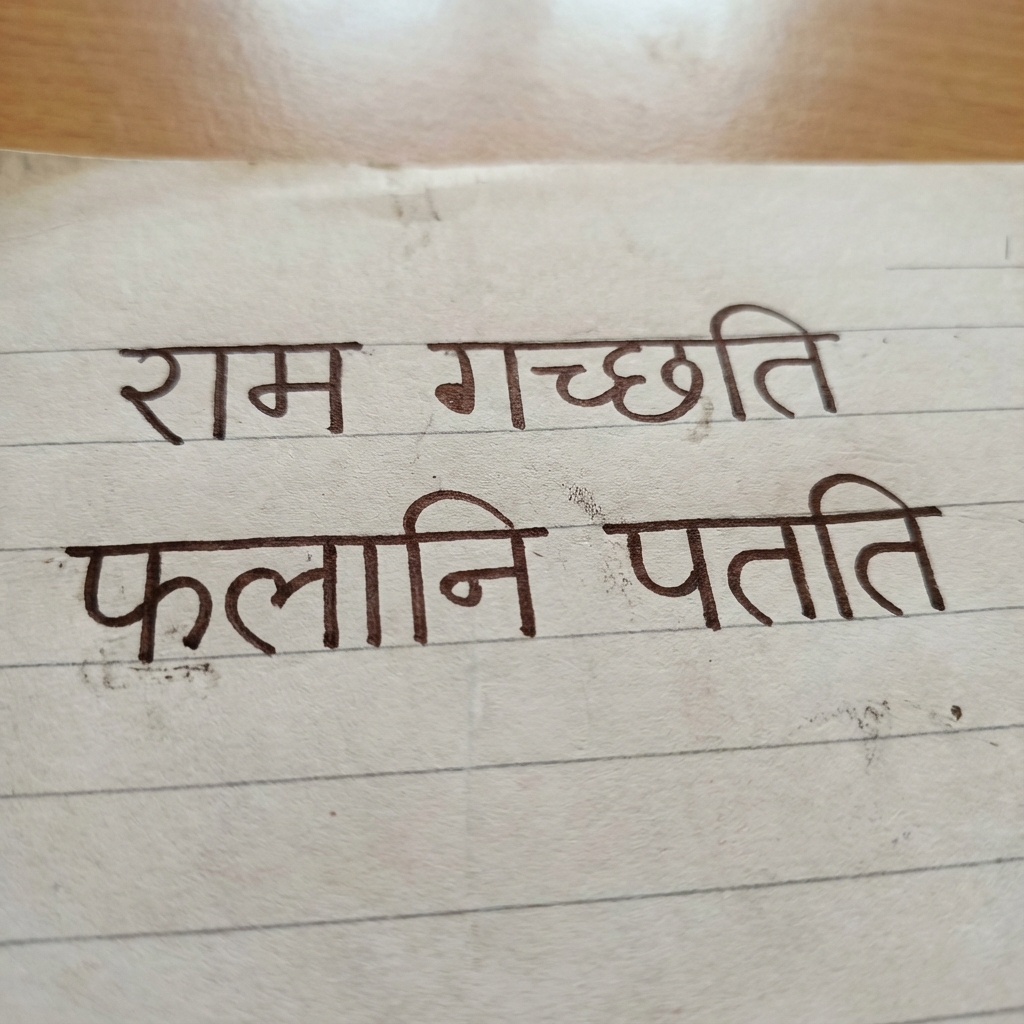 राम गच्छति
फलानि पतति